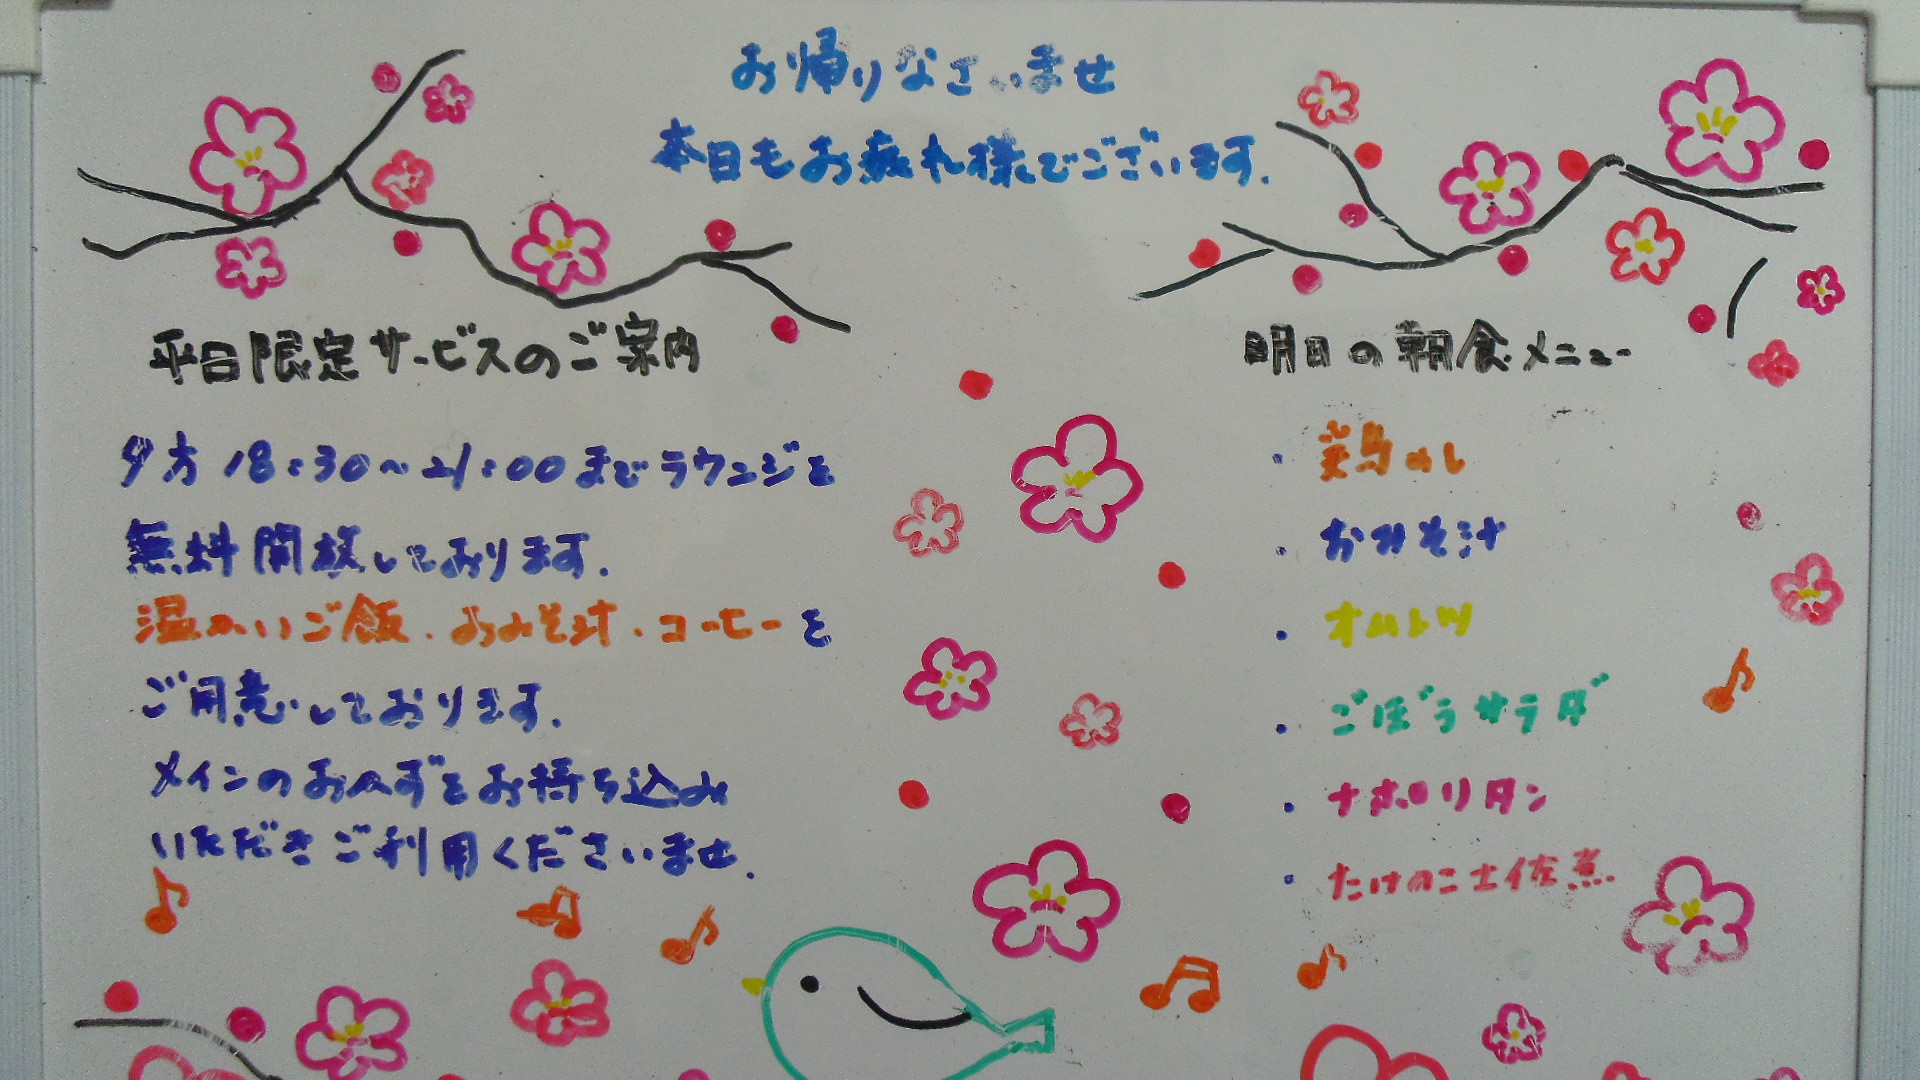 お帰りなさいませ
本日もお疲れ様でございます.
平日限定サービスのご案内
夕方18:30~21:00までラウンジを
無料開放しております.
温かいご飯・おみそ汁・コーヒーを
ご用意しております.
メインのおかずをお持ち込み
いただきご利用くださいませ.
明日の朝食メニュー
・鶏めし
・おみそ汁
・オムレツ
・ごぼうサラダ
・ナポリタン
・たけのこ土佐煮